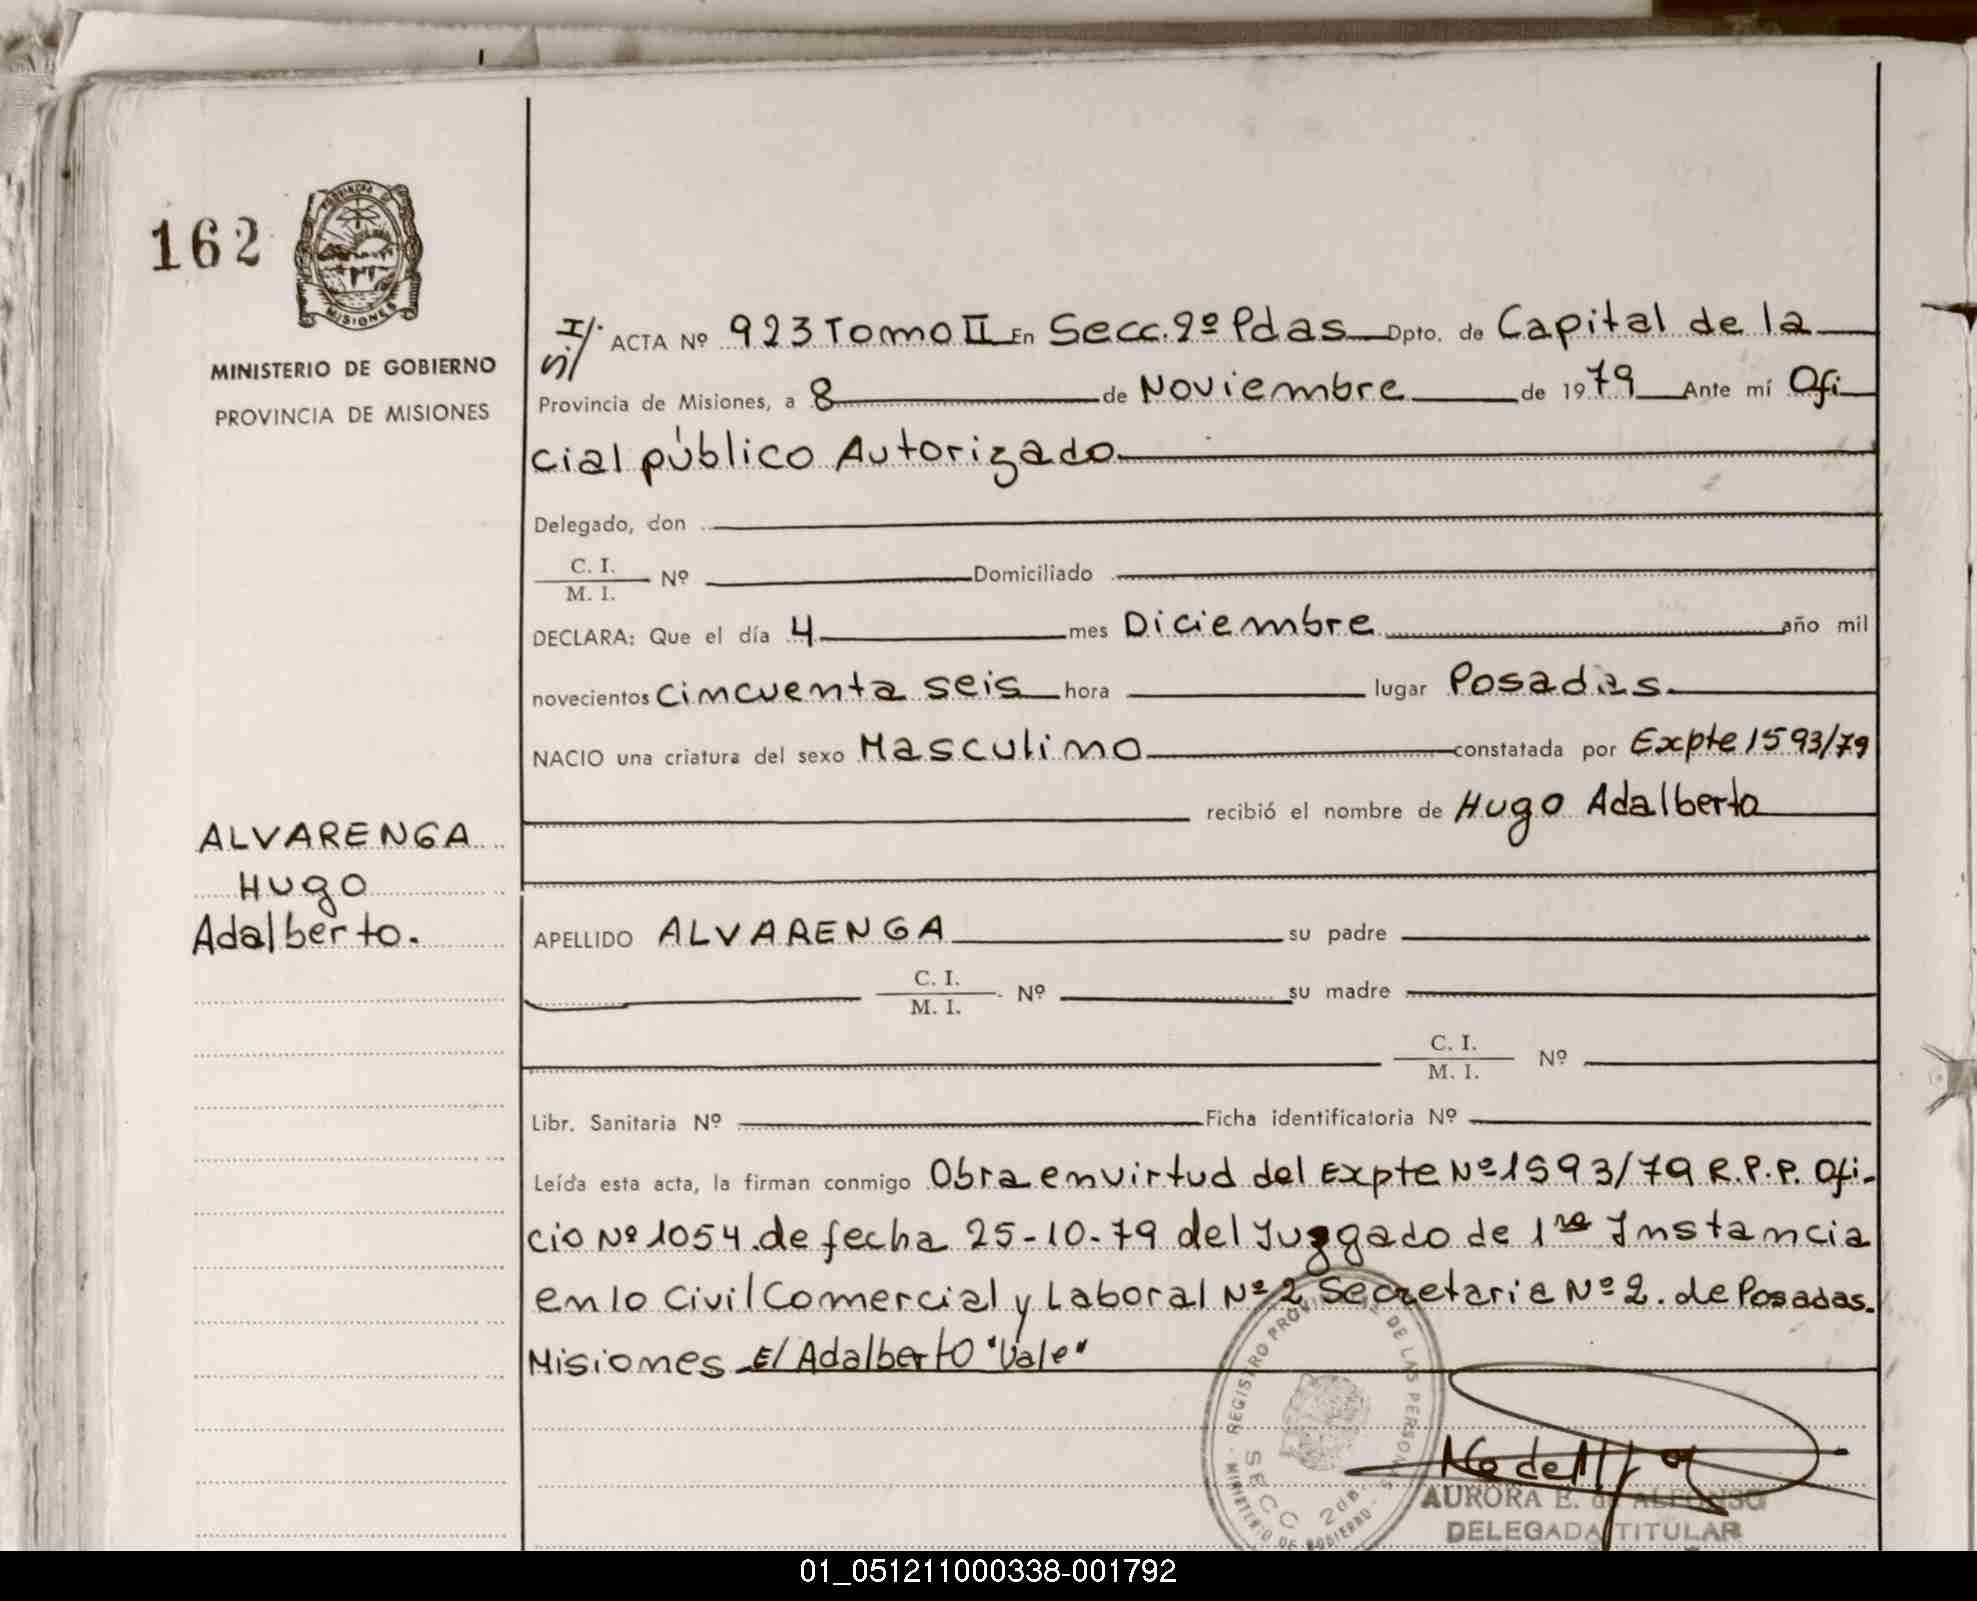 162
PROVINCIA DE
MISIONES
MINISTERIO DE GOBIERNO
PROVINCIA DE MISIONES
ALVARENGA
Hugo
Adalberto.
S/I/. ACTA Nº 923 Tomo II En Secc. 2º Pdas Dpto. de Capital de la
Provincia de Misiones, a 8 de Noviembre de 1979 Ante mí Ofi
cial público Autorizado
Delegado, don
C. I.
M. I. Nº Domiciliado
DECLARA: Que el día 4 mes Diciembre año mil
novecientos cincuenta seis hora lugar Posadas
NACIO una criatura del sexo Masculino constatada por Expte 1593/79
recibió el nombre de Hugo Adalberto
APELLIDO ALVARENGA su padre
C. I.
M. I. Nº su madre
C. I.
M. I. Nº
Libr. Sanitaria Nº Ficha identificatoria Nº
Leída esta acta, la firman conmigo Obra en virtud del Expte Nº 1593/79 R.P.P. Ofi-
cio Nº 1054 de fecha 25-10-79 del Juzgado de 1ra Instancia
en lo Civil Comercial y Laboral Nº 2 Secretaria Nº 2. de Posadas.
Misiones E/ Adalberto "Vale"
REGISTRO PROVINCIAL DE LAS PERSONAS
MINISTERIO DE GOBIERNO
SECC 2da.
AURORA E. de ALFONSO
DELEGADA TITULAR
01_051211000338-001792